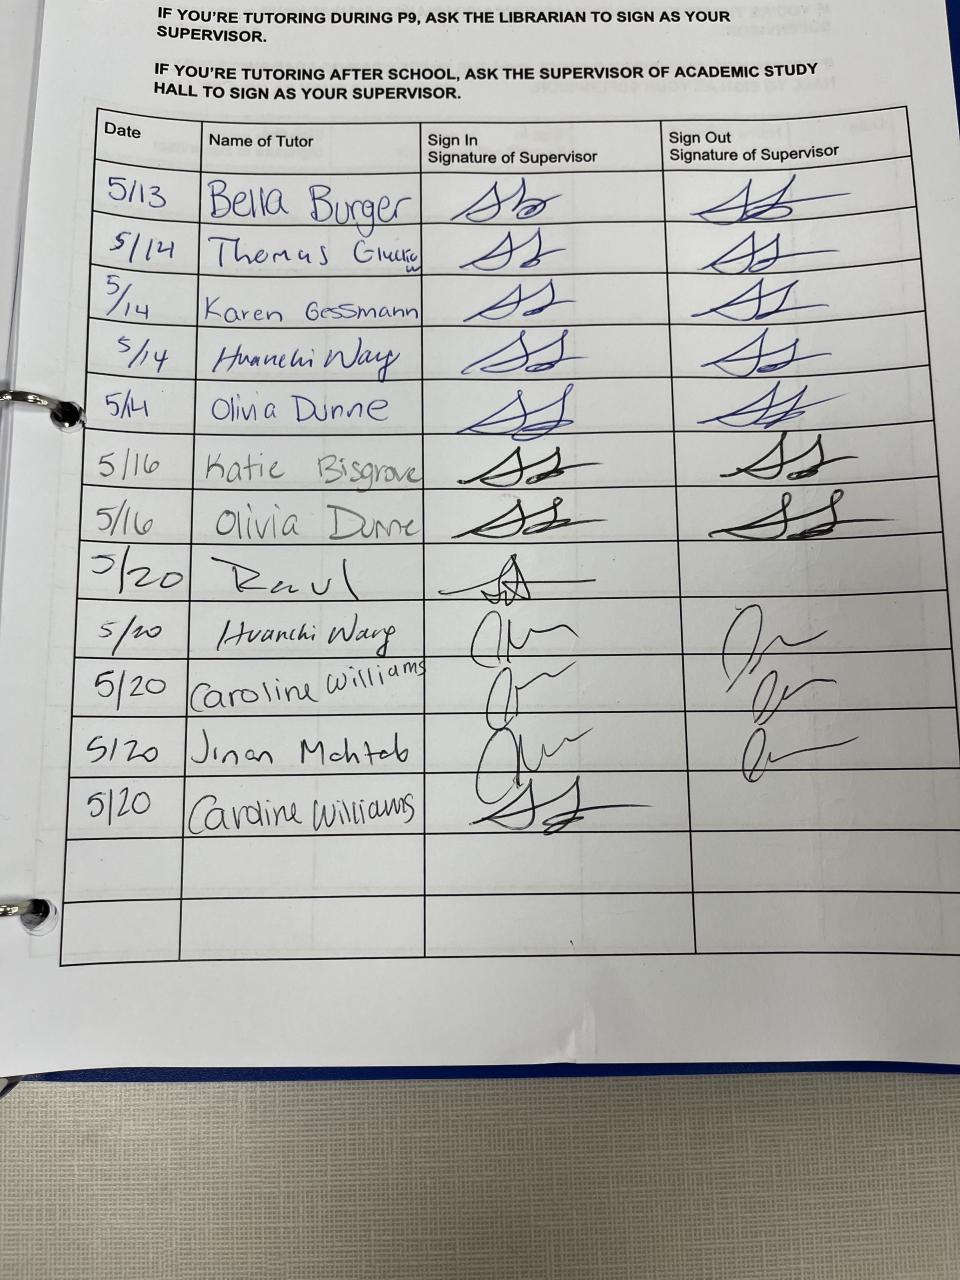 IF YOU'RE TUTORING DURING P9, ASK THE LIBRARIAN TO SIGN AS YOUR
SUPERVISOR.
IF YOU'RE TUTORING AFTER SCHOOL, ASK THE SUPERVISOR OF ACADEMIC STUDY
HALL TO SIGN AS YOUR SUPERVISOR.
Date Name of Tutor Sign In Sign Out
Signature of Supervisor Signature of Supervisor
5/13 Bella Burger
5/14 Thomas
5/14 Karen Gessmann
5/14 Huanchi Wang
5/14 Olivia Dunne
5/16 Katie Bisgrove
5/16 Olivia Dunne
5/20 Raul
5/20 Huanchi Wang
5/20 Caroline Williams
5/20 Jinan Mahtab
5/20 Caroline Williams